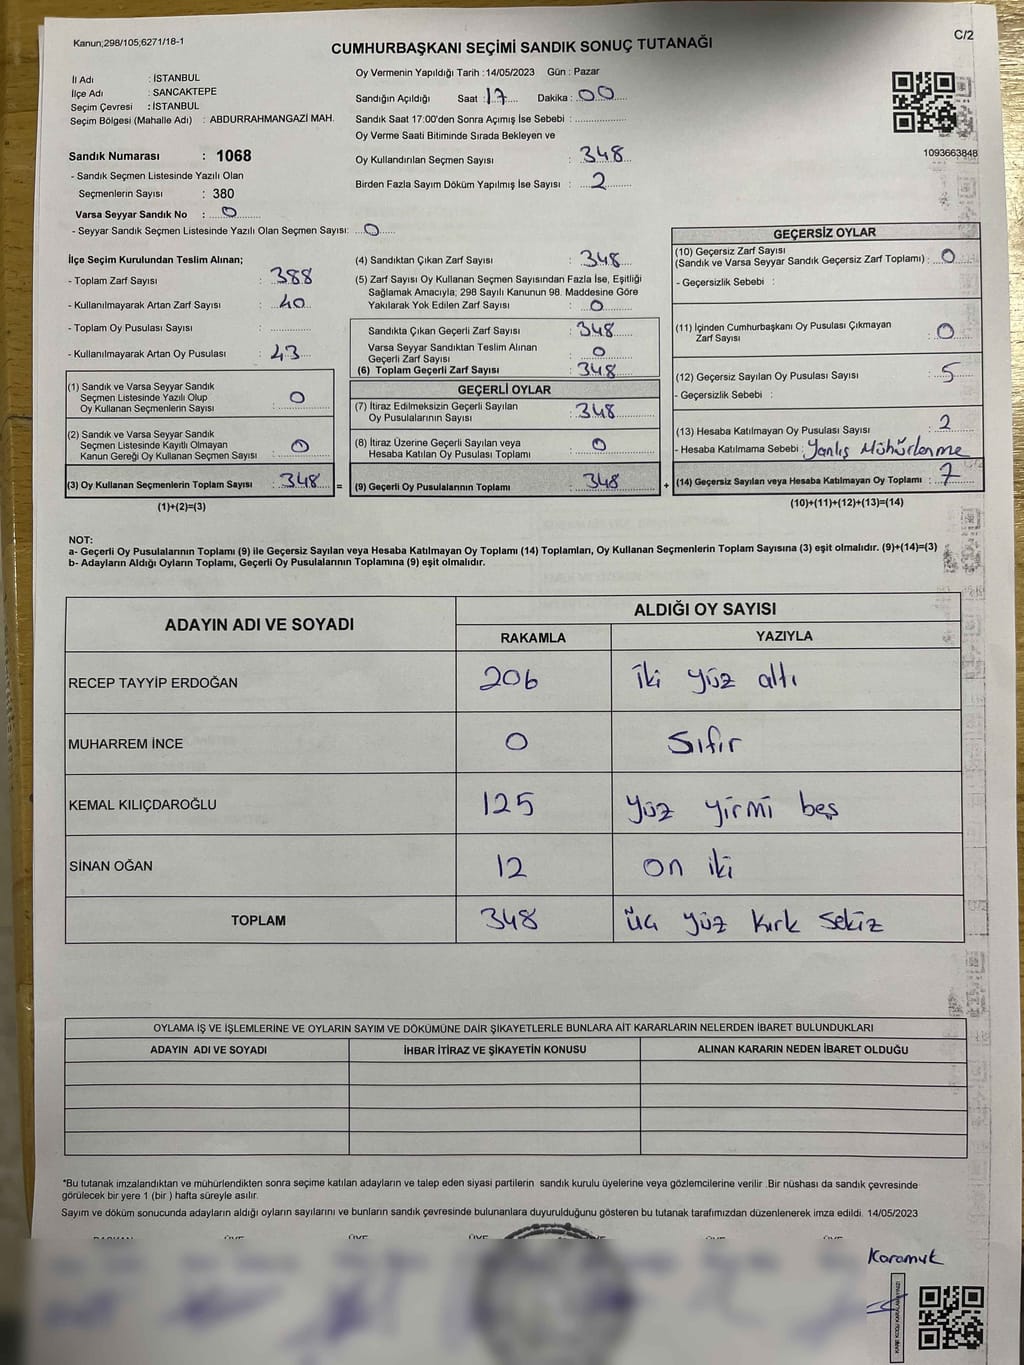 Kanun;298/105;6271/18-1
C/2
CUMHURBAŞKANI SEÇİMİ SANDIK SONUÇ TUTANAĞI
İl Adı : İSTANBUL
İlçe Adı : SANCAKTEPE
Seçim Çevresi : İSTANBUL
Seçim Bölgesi (Mahalle Adı) : ABDURRAHMANGAZİ MAH.
Sandık Numarası : 1068
- Sandık Seçmen Listesinde Yazılı Olan
Seçmenlerin Sayısı : 380
Varsa Seyyar Sandık No : 0
- Seyyar Sandık Seçmen Listesinde Yazılı Olan Seçmen Sayısı: 0
Oy Vermenin Yapıldığı Tarih :14/05/2023 Gün : Pazar
Sandığın Açıldığı Saat : 17 Dakika : 00
Sandık Saat 17:00'den Sonra Açımış İse Sebebi : ..............
Oy Verme Saati Bitiminde Sırada Bekleyen ve
Oy Kullandırılan Seçmen Sayısı : 348
Birden Fazla Sayım Döküm Yapılmış İse Sayısı : 2
1093663848
İlçe Seçim Kurulundan Teslim Alınan;
- Toplam Zarf Sayısı : 388
- Kullanılmayarak Artan Zarf Sayısı : 40
- Toplam Oy Pusulası Sayısı : ..............
- Kullanılmayarak Artan Oy Pusulası : 43
(1) Sandık ve Varsa Seyyar Sandık
Seçmen Listesinde Yazılı Olup
Oy Kullanan Seçmenlerin Sayısı : 0
(2) Sandık ve Varsa Seyyar Sandık
Seçmen Listesinde Kayıtlı Olmayan
Kanun Gereği Oy Kullanan Seçmen Sayısı : 0
(3) Oy Kullanan Seçmenlerin Toplam Sayısı : 348 =
(1)+(2)=(3)
(4) Sandıktan Çıkan Zarf Sayısı : 348
(5) Zarf Sayısı Oy Kullanan Seçmen Sayısından Fazla İse, Eşitliği
Sağlamak Amacıyla; 298 Sayılı Kanunun 98. Maddesine Göre
Yakılarak Yok Edilen Zarf Sayısı : 0
Sandıkta Çıkan Geçerli Zarf Sayısı : 348
Varsa Seyyar Sandıktan Teslim Alınan
Geçerli Zarf Sayısı : 0
(6) Toplam Geçerli Zarf Sayısı : 348
GEÇERLİ OYLAR
(7) İtiraz Edilmeksizin Geçerli Sayılan
Oy Pusulalarının Sayısı : 348
(8) İtiraz Üzerine Geçerli Sayılan veya
Hesaba Katılan Oy Pusulası Toplamı : 0
(9) Geçerli Oy Pusulalarının Toplamı : 348 +
GEÇERSİZ OYLAR
(10) Geçersiz Zarf Sayısı
(Sandık ve Varsa Seyyar Sandık Geçersiz Zarf Toplamı) : 0
- Geçersizlik Sebebi :
(11) İçinden Cumhurbaşkanı Oy Pusulası Çıkmayan
Zarf Sayısı : 0
(12) Geçersiz Sayılan Oy Pusulası Sayısı : 5
- Geçersizlik Sebebi :
(13) Hesaba Katılmayan Oy Pusulası Sayısı : 2
- Hesaba Katılmama Sebebi : Yanlış Mühürlenme
(14) Geçersiz Sayılan veya Hesaba Katılmayan Oy Toplamı : 7
(10)+(11)+(12)+(13)=(14)
NOT:
a- Geçerli Oy Pusulalarının Toplamı (9) ile Geçersiz Sayılan veya Hesaba Katılmayan Oy Toplamı (14) Toplamları, Oy Kullanan Seçmenlerin Toplam Sayısına (3) eşit olmalıdır. (9)+(14)=(3)
b- Adayların Aldığı Oyların Toplamı, Geçerli Oy Pusulalarının Toplamına (9) eşit olmalıdır.
ADAYIN ADI VE SOYADI
ALDIĞI OY SAYISI
RAKAMLA YAZIYLA
RECEP TAYYİP ERDOĞAN 206 iki yüz altı
MUHARREM İNCE 0 Sıfır
KEMAL KILIÇDAROĞLU 125 yüz yirmi beş
SİNAN OĞAN 12 on iki
TOPLAM 348 üç yüz kırk sekiz
OYLAMA İŞ VE İŞLEMLERİNE VE OYLARIN SAYIM VE DÖKÜMÜNE DAİR ŞİKAYETLERLE BUNLARA AİT KARARLARIN NELERDEN İBARET BULUNDUKLARI
ADAYIN ADI VE SOYADI İHBAR İTİRAZ VE ŞİKAYETİN KONUSU ALINAN KARARIN NEDEN İBARET OLDUĞU
*Bu tutanak imzalandıktan ve mühürlendikten sonra seçime katılan adayların ve talep eden siyasi partilerin sandık kurulu üyelerine veya gözlemcilerine verilir .Bir nüshası da sandık çevresinde
görülecek bir yere 1 (bir ) hafta süreyle asılır.
Sayım ve döküm sonucunda adayların aldığı oyların sayılarını ve bunların sandık çevresinde bulunanlara duyurulduğunu gösteren bu tutanak tarafımızdan düzenlenerek imza edildi. 14/05/2023
Karamut